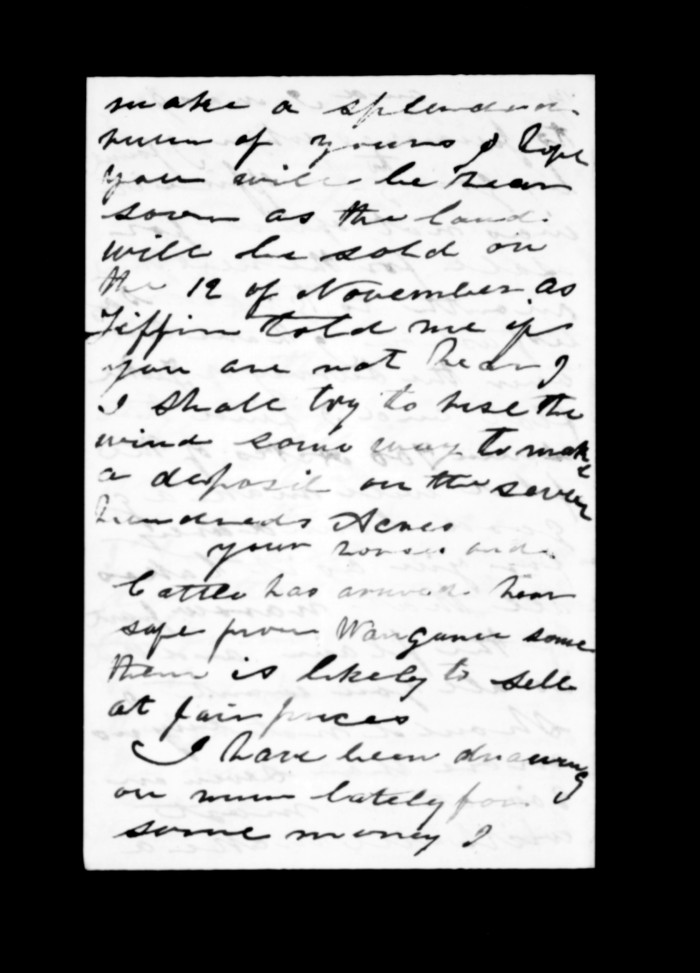 make a splendid
run of yours I hope
you will be hear
soon as the land
will be sold on
the 12 of November as
Tiffin told me if
you are not hear I
I shall try to rise the
wind some way to make
a deposit on the seven
hundreds Acres
your horses and
Cattle has arrived hear
safe from Wanganui some
them is likely to sell
at fair prices
I have been drawing
on lately for
some money I